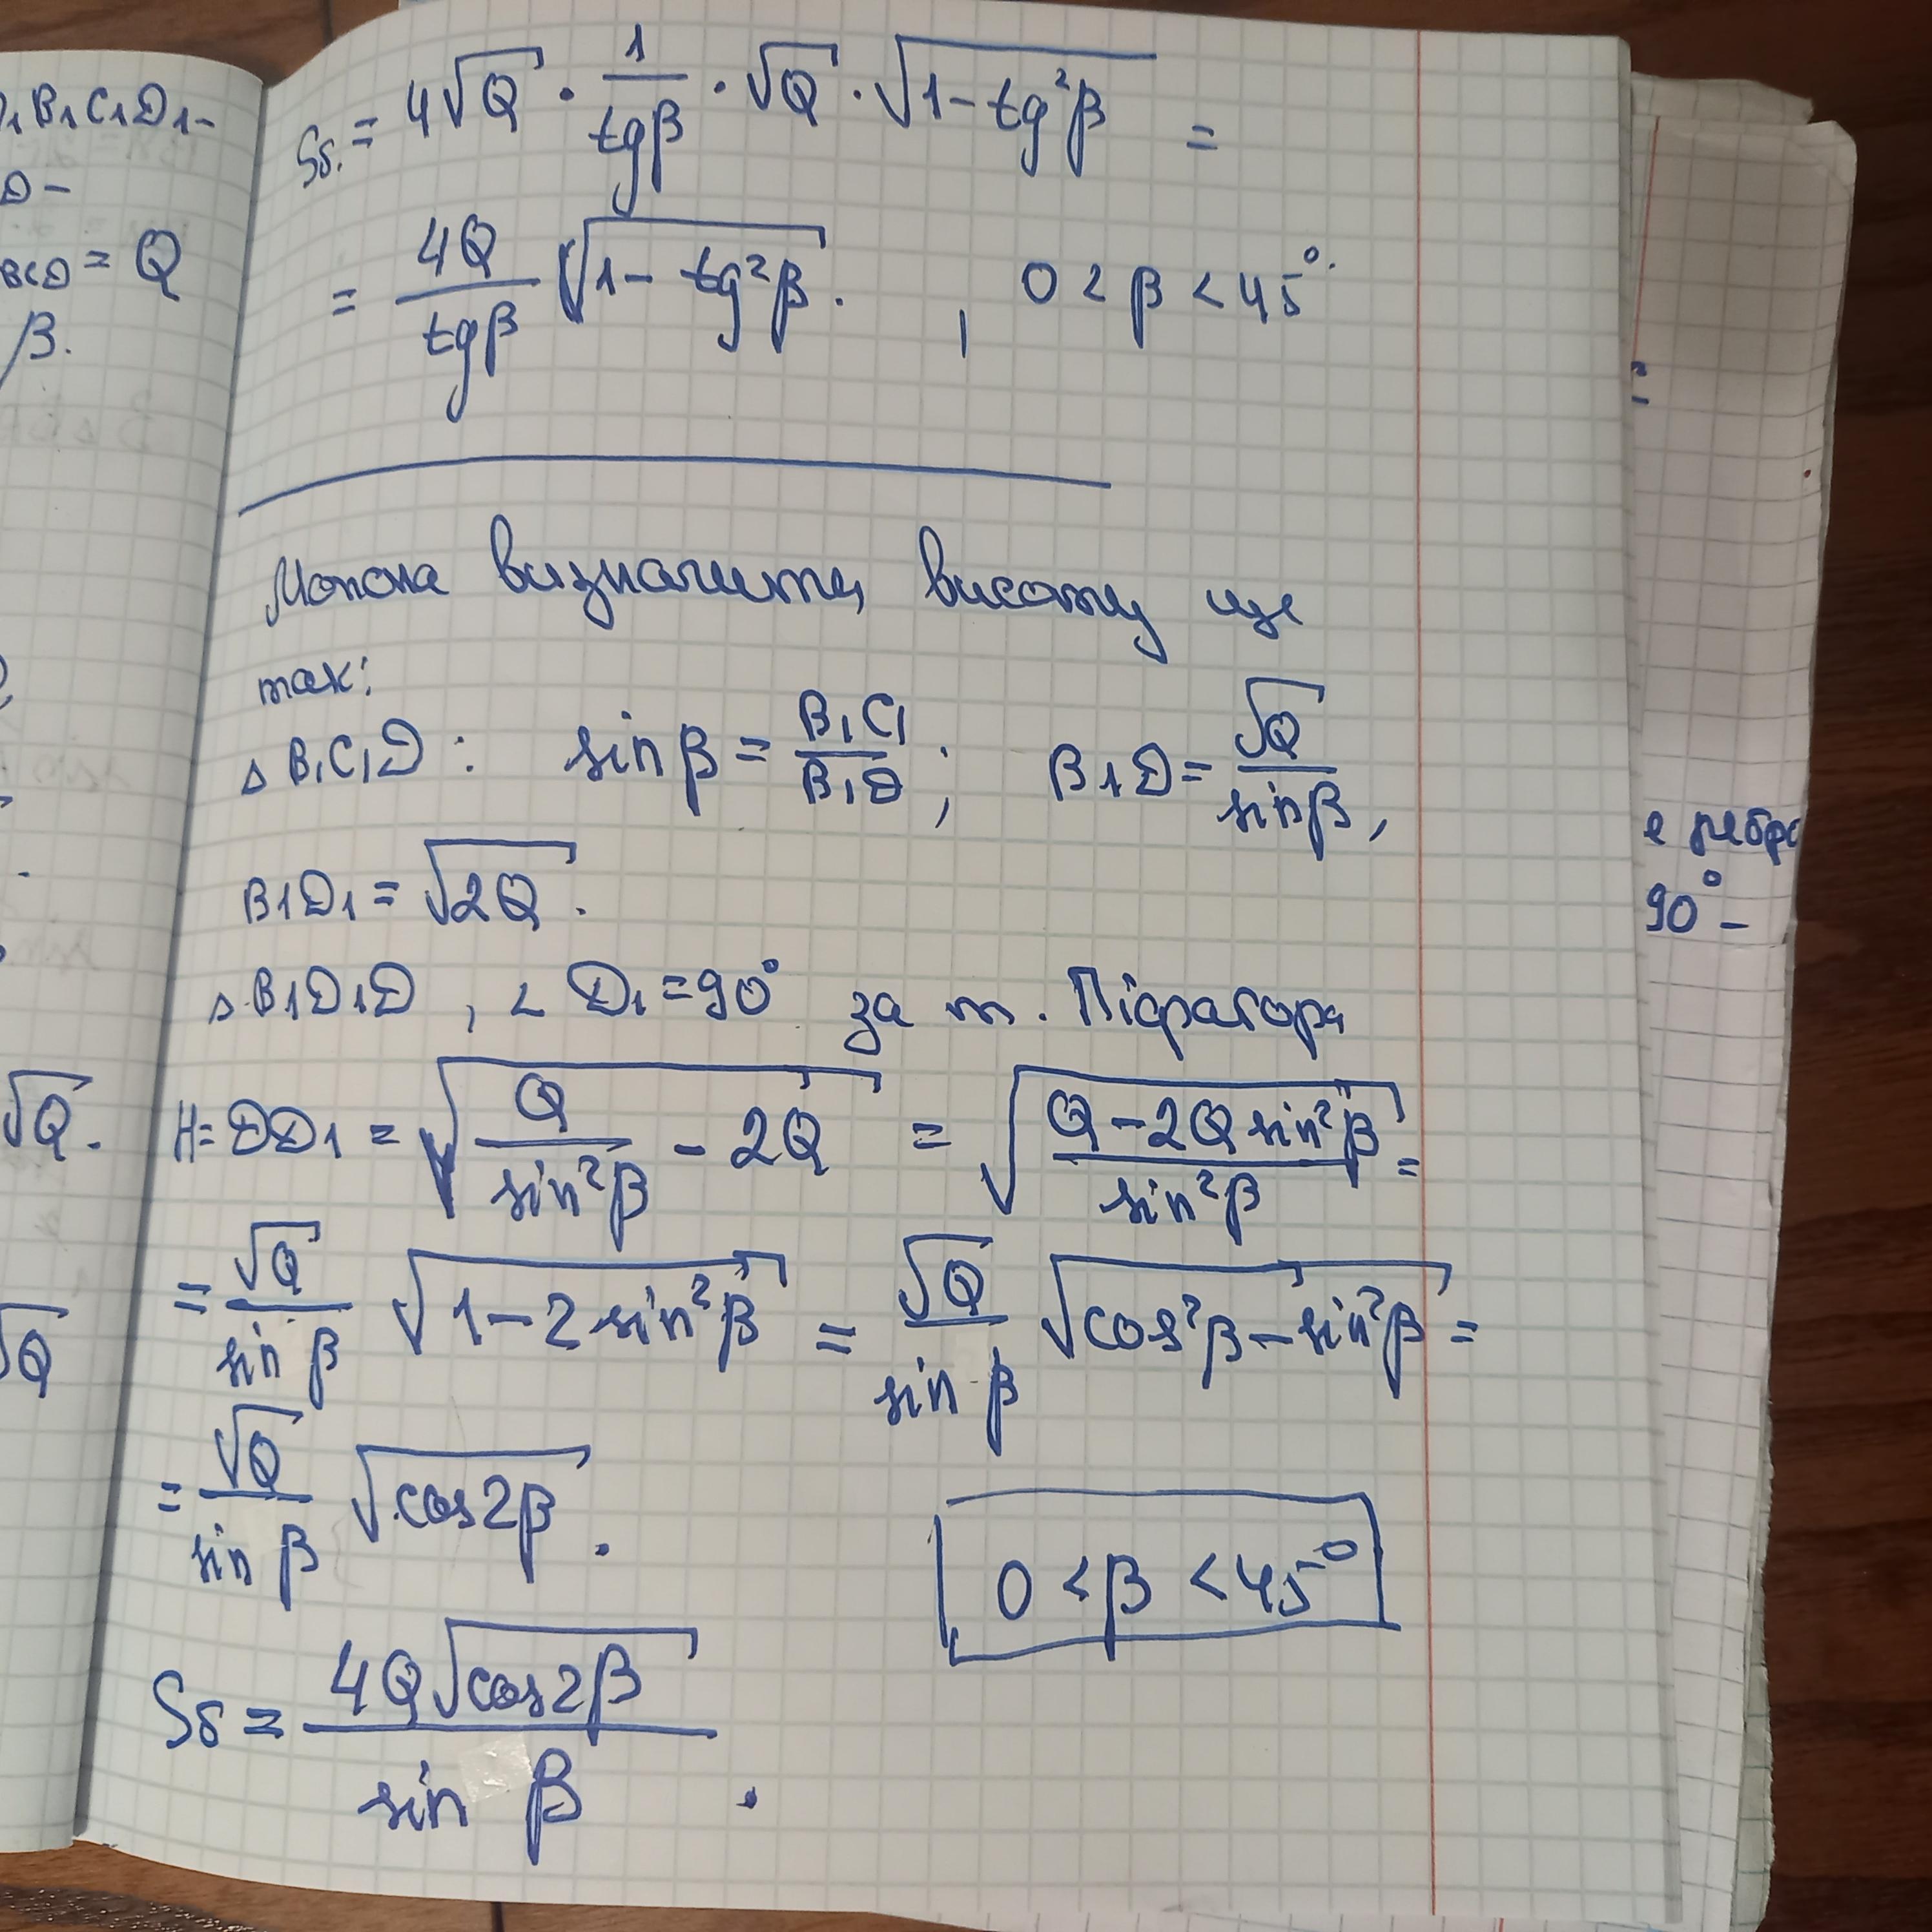 A₁B₁C₁D₁-
D-
BCD = Q
β.
√Q.
√Q
Sδ. = 4√Q · 1/tgβ · √Q · √(1-tg²β) =
= 4Q/tgβ √(1-tg²β). , 0 < β < 45°.
Можна визначити висоту ще
так:
△ B₁C₁D : sin β = B₁C₁/B₁D ; B₁D = √Q/sinβ,
B₁D₁ = √2Q.
△ B₁D₁D , ∠ D₁ = 90° за т. Піфагора
H = DD₁ = √(Q/sin²β - 2Q) = √((Q-2Q sin²β)/sin²β) =
= √Q/sin β √(1-2 sin²β) = √Q/sin β √(cos²β - sin²β) =
= √Q/sin β √cos2β.
0 < β < 45°
Sδ = 4Q√cos2β/sin β .
е ребро
90° -